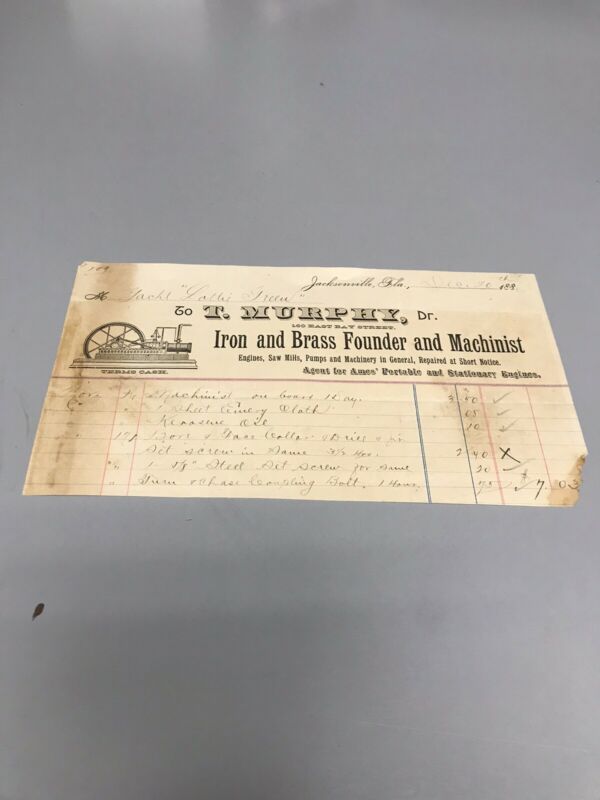 Jacksonville, Fla., Dec. 20 188
M Yacht "Lollie Green"
To T. MURPHY, Dr.
160 EAST BAY STREET.
Iron and Brass Founder and Machinist
Engines, Saw Mills, Pumps and Machinery in General, Repaired at Short Notice.
TERMS CASH.
Agent for Ames' Portable and Stationary Engines.
Machinist on board 1 Day. 3.50
1 Sheet Emery Cloth 05
Kerosene Oil 10
1 Bore & Face Collar & Drill & pr.
Set screw in Same Hor. 2 40 X
1 Steel Set Screw for same 20
" Turn & Chase Coupling Bolt. 1 Hour. 75 $7.03